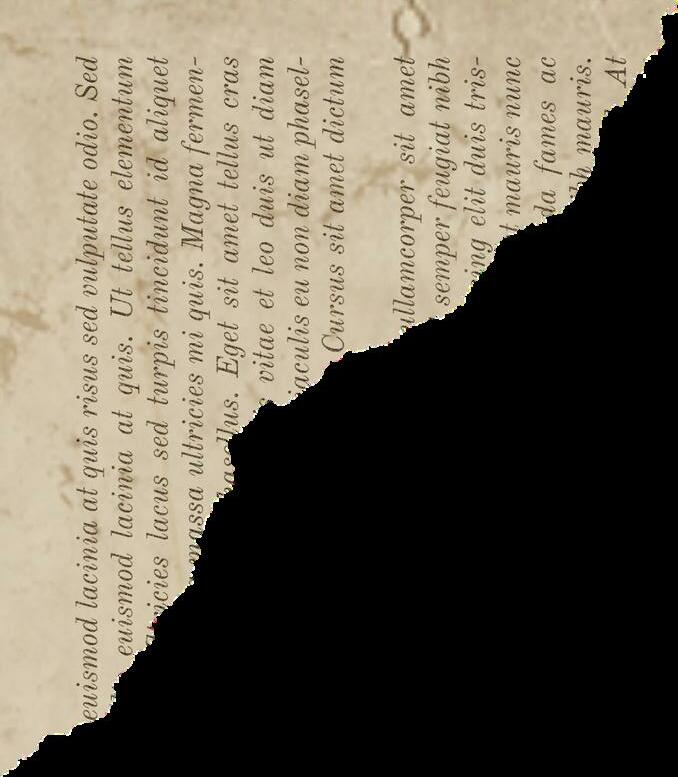 euismod lacinia at quis risus sed vulputate odio. Sed
euismod lacinia at quis. Ut tellus elementum
ultricies lacus sed turpis tincidunt id aliquet
massa ultricies mi quis. Magna fermen-
phasellus. Eget sit amet tellus cras
vitae et leo duis ut diam
iaculis eu non diam phasel-
Cursus sit amet dictum
ullamcorper sit amet
semper feugiat nibh
ing elit duis tris-
mauris nunc
da fames ac
mauris.
At